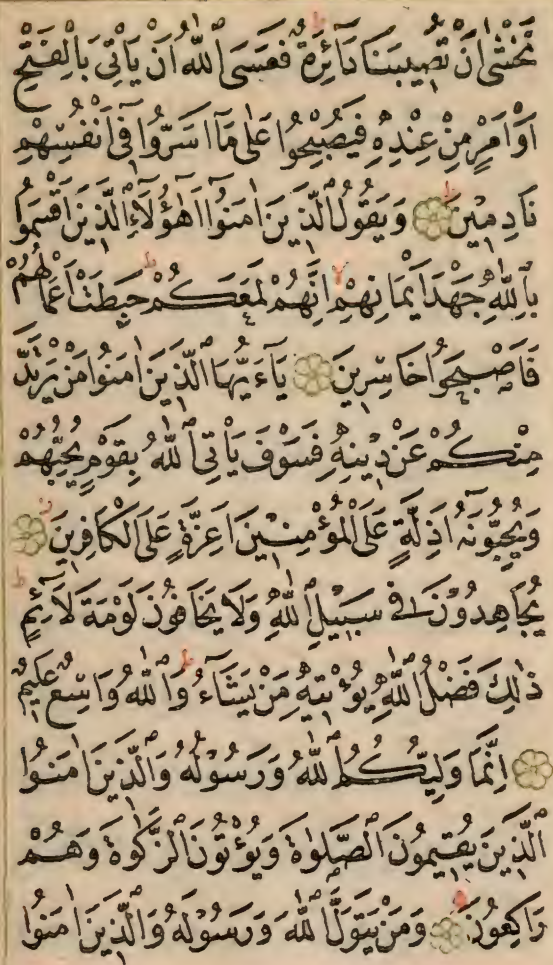 نَخْشٰى اَنْ تُصِيبَنَا دَآئِرَةٌ ط فَعَسَى اللّٰهُ اَنْ يَأْتِىَ بِالْفَتْحِ
اَوْ اَمْرٍ مِنْ عِنْدِهِ فَيُصْبِحُوا عَلٰى مَآ اَسَرُّوا فِىٓ اَنْفُسِهِمْ
نَادِمِينَ ط وَيَقُولُ الَّذِينَ اٰمَنُوٓا اَهٰٓؤُلَآءِ الَّذِينَ اَقْسَمُوا
بِاللّٰهِ جَهْدَ اَيْمَانِهِمْ لا اِنَّهُمْ لَمَعَكُمْ ط حَبِطَتْ اَعْمَالُهُمْ
فَاَصْبَحُوا خَاسِرِينَ يَآءَيُّهَا الَّذِينَ اٰمَنُوا مَنْ يَرْتَدَّ
مِنْكُمْ عَنْ دِينِهِ فَسَوْفَ يَأْتِى اللّٰهُ بِقَوْمٍ يُحِبُّهُمْ
وَيُحِبُّونَهُٓ اَذِلَّةٍ عَلَى الْمُؤْمِنِينَ اَعِزَّةٍ عَلَى الْكَافِرِينَ
يُجَاهِدُونَ فِى سَبِيلِ اللّٰهِ وَلَا يَخَافُونَ لَوْمَةَ لَآئِمٍ ط
ذٰلِكَ فَضْلُ اللّٰهِ يُؤْتِيهِ مَنْ يَشَآءُ ط وَاللّٰهُ وَاسِعٌ عَلِيمٌ
اِنَّمَا وَلِيُّكُمُ اللّٰهُ وَرَسُولُهُ وَالَّذِينَ اٰمَنُوا
الَّذِينَ يُقِيمُونَ الصَّلٰوةَ وَيُؤْتُونَ الزَّكٰوةَ وَهُمْ
رَاكِعُونَ وَمَنْ يَتَوَلَّ اللّٰهَ وَرَسُولَهُ وَالَّذِينَ اٰمَنُوا